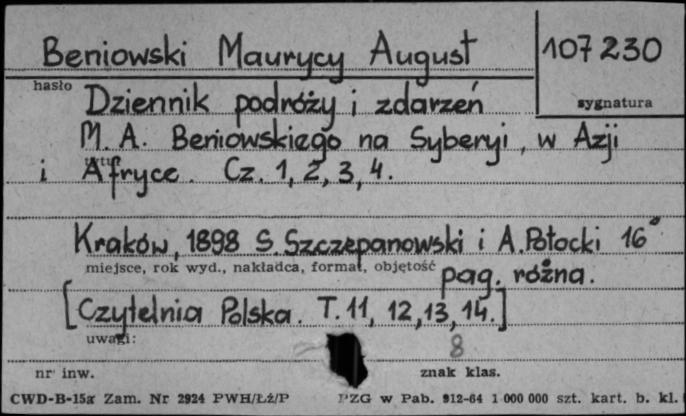 Beniowski Maurycy August 107 230
hasło
Dziennik podróży i zdarzeń sygnatura
M. A. Beniowskiego na Syberyi, w Azji
i Afryce. Cz. 1, 2, 3, 4.
Kraków, 1898 S. Szczepanowski i A. Potocki 16°
miejsce, rok wyd., nakładca, format, objętość
pag. różna.
[Czytelnia Polska. T. 11, 12, 13, 14.]
uwagi: 8
nr inw. znak klas.
CWD-B-15a Zam. Nr 2924 PWH/Łż/P PZG w Pab. 912-64 1 000 000 szt. kart. b. kl.